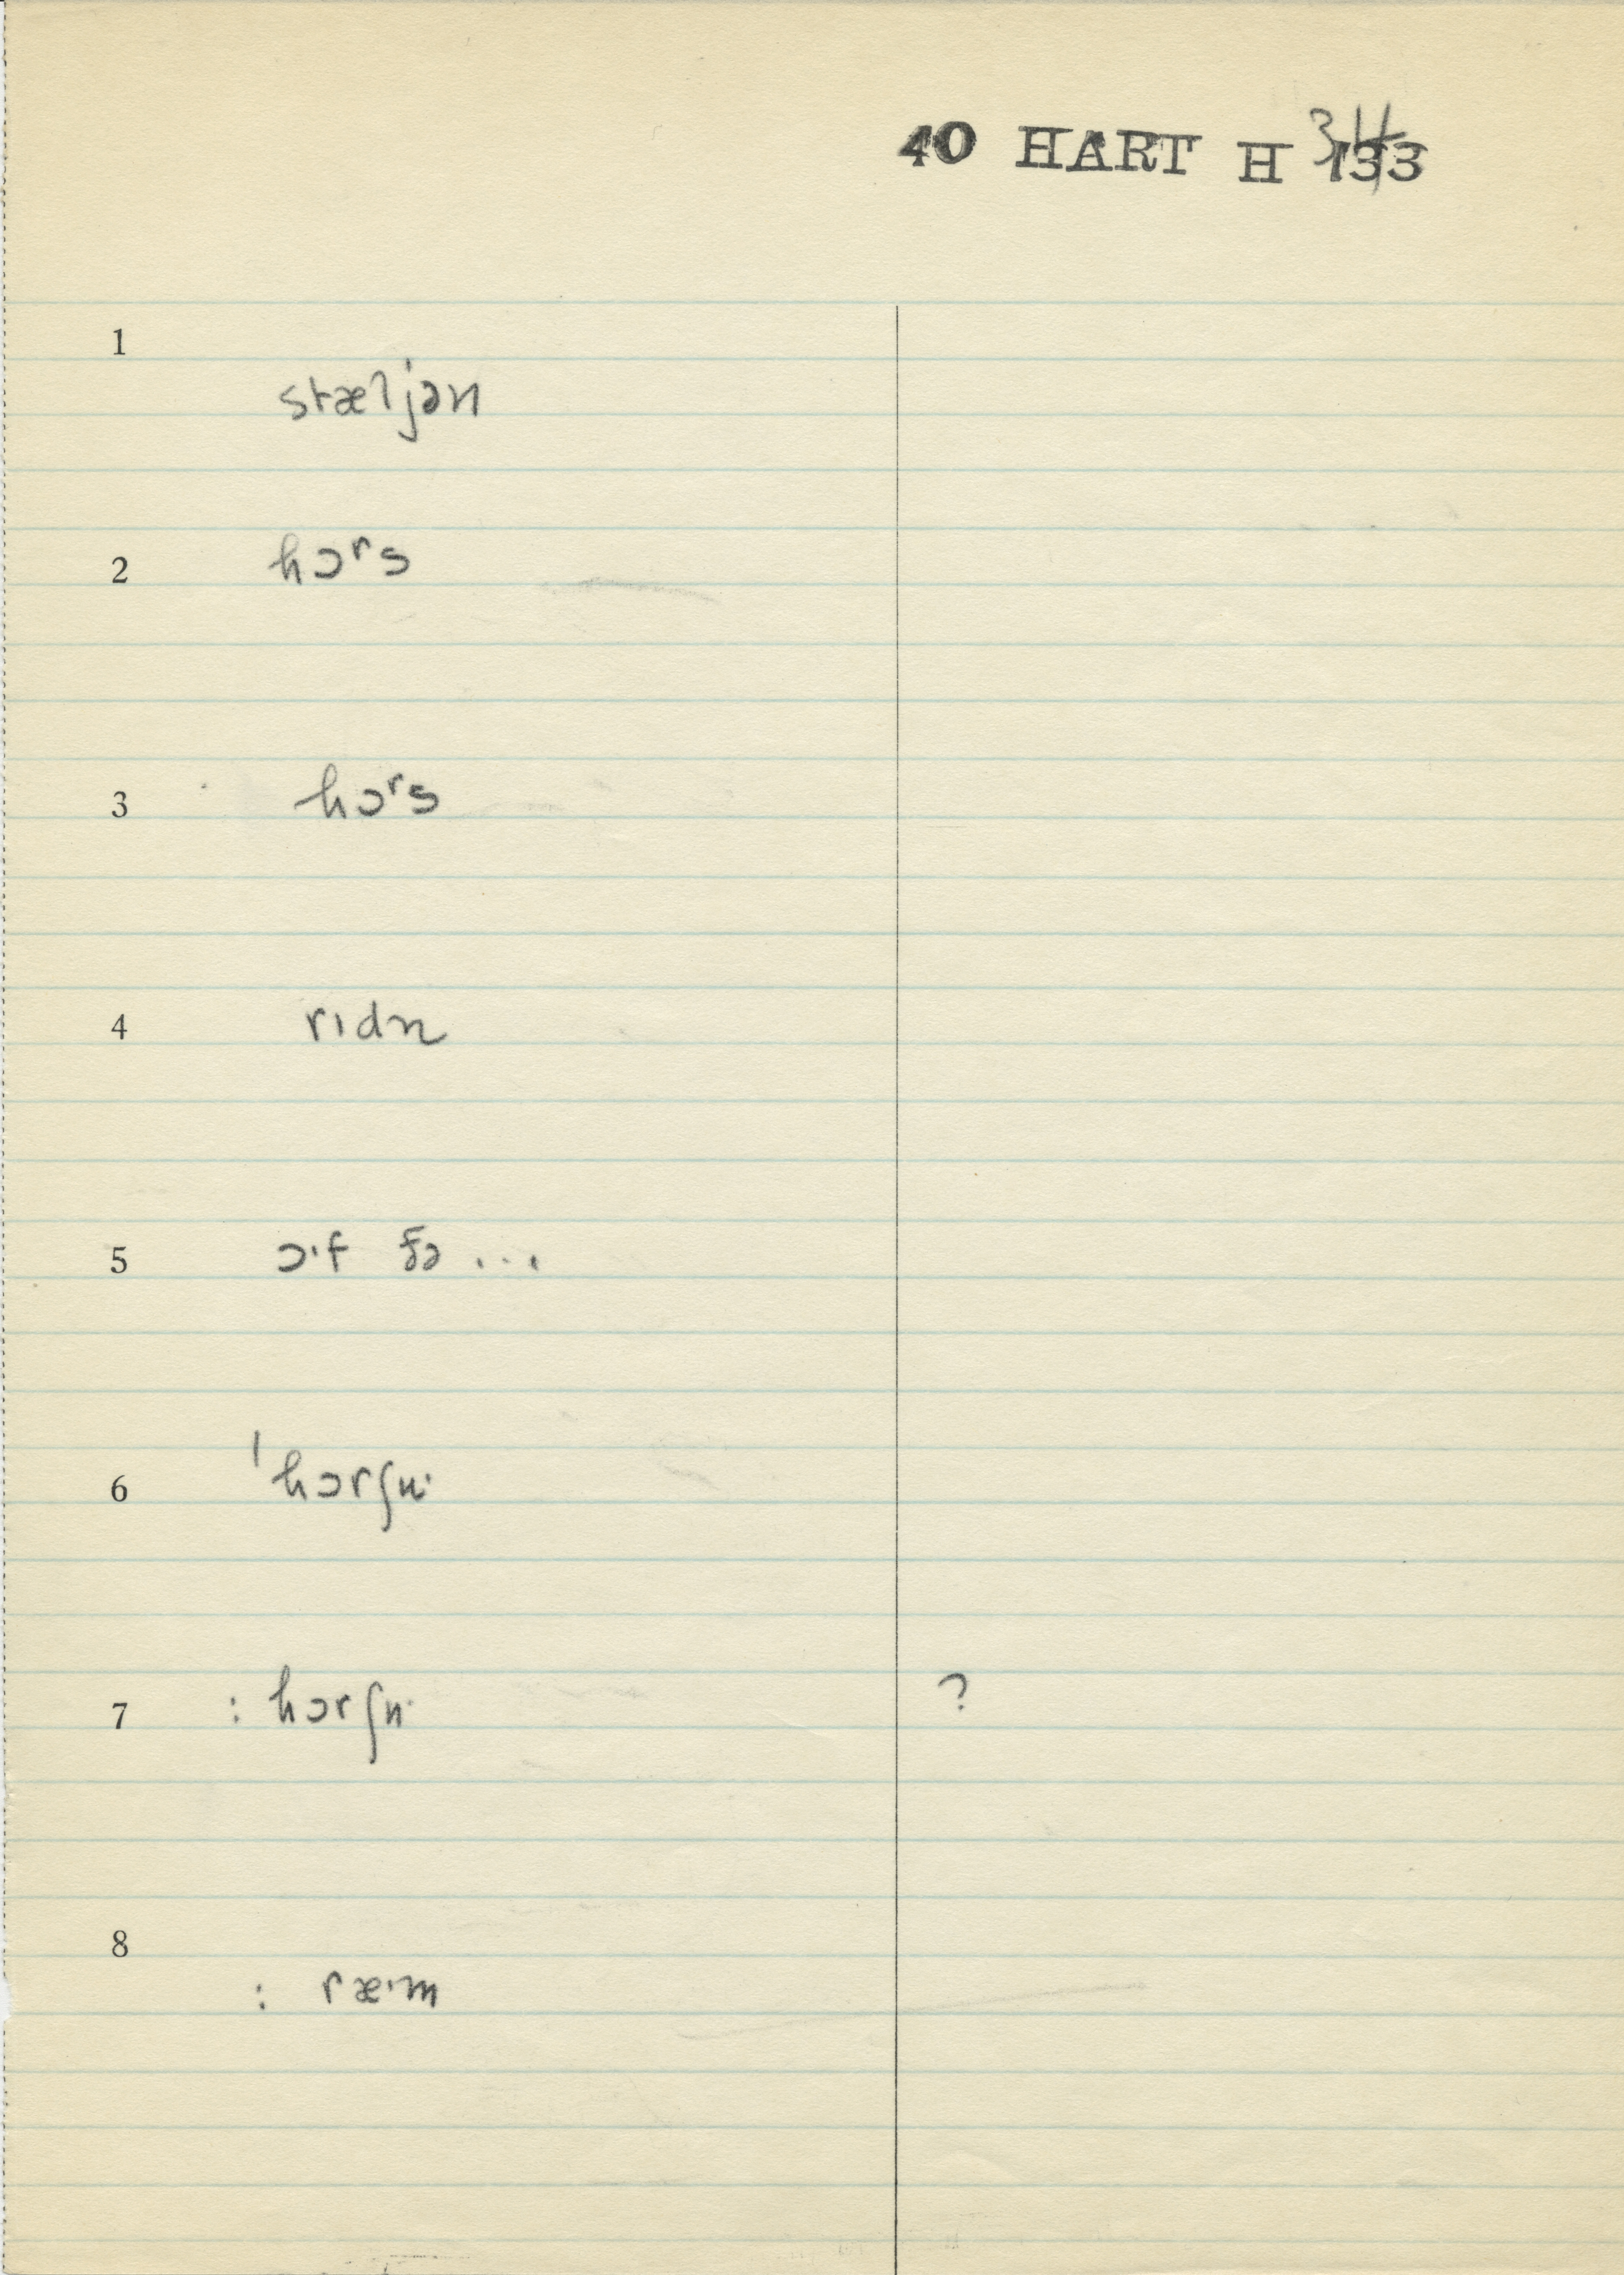 40 HART H 34 133
1
stæljən
2 hɔʳs
3 hɔʳs
4 rɪdn
5 ɔˑf ðə ...
6 ˈhɔrʃuˑ
7 : hɔrʃuˑ ?
8
: ræˑm